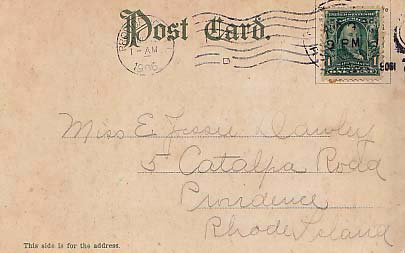 Post Card.
1-AM
1905
PM
Miss E. Jessie Dawley
5 Catalpa Road
Providence
Rhode Island
This side is for the address.